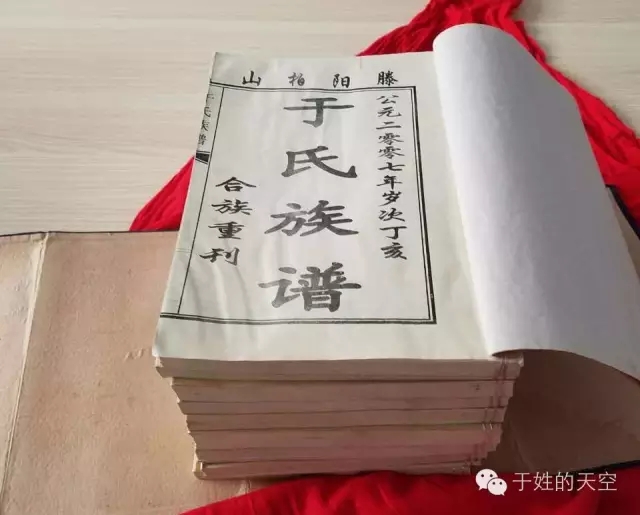 滕阳柏山
公元二零零七年岁次丁亥
于氏族谱
合族重刊
于氏族谱
于姓的天空